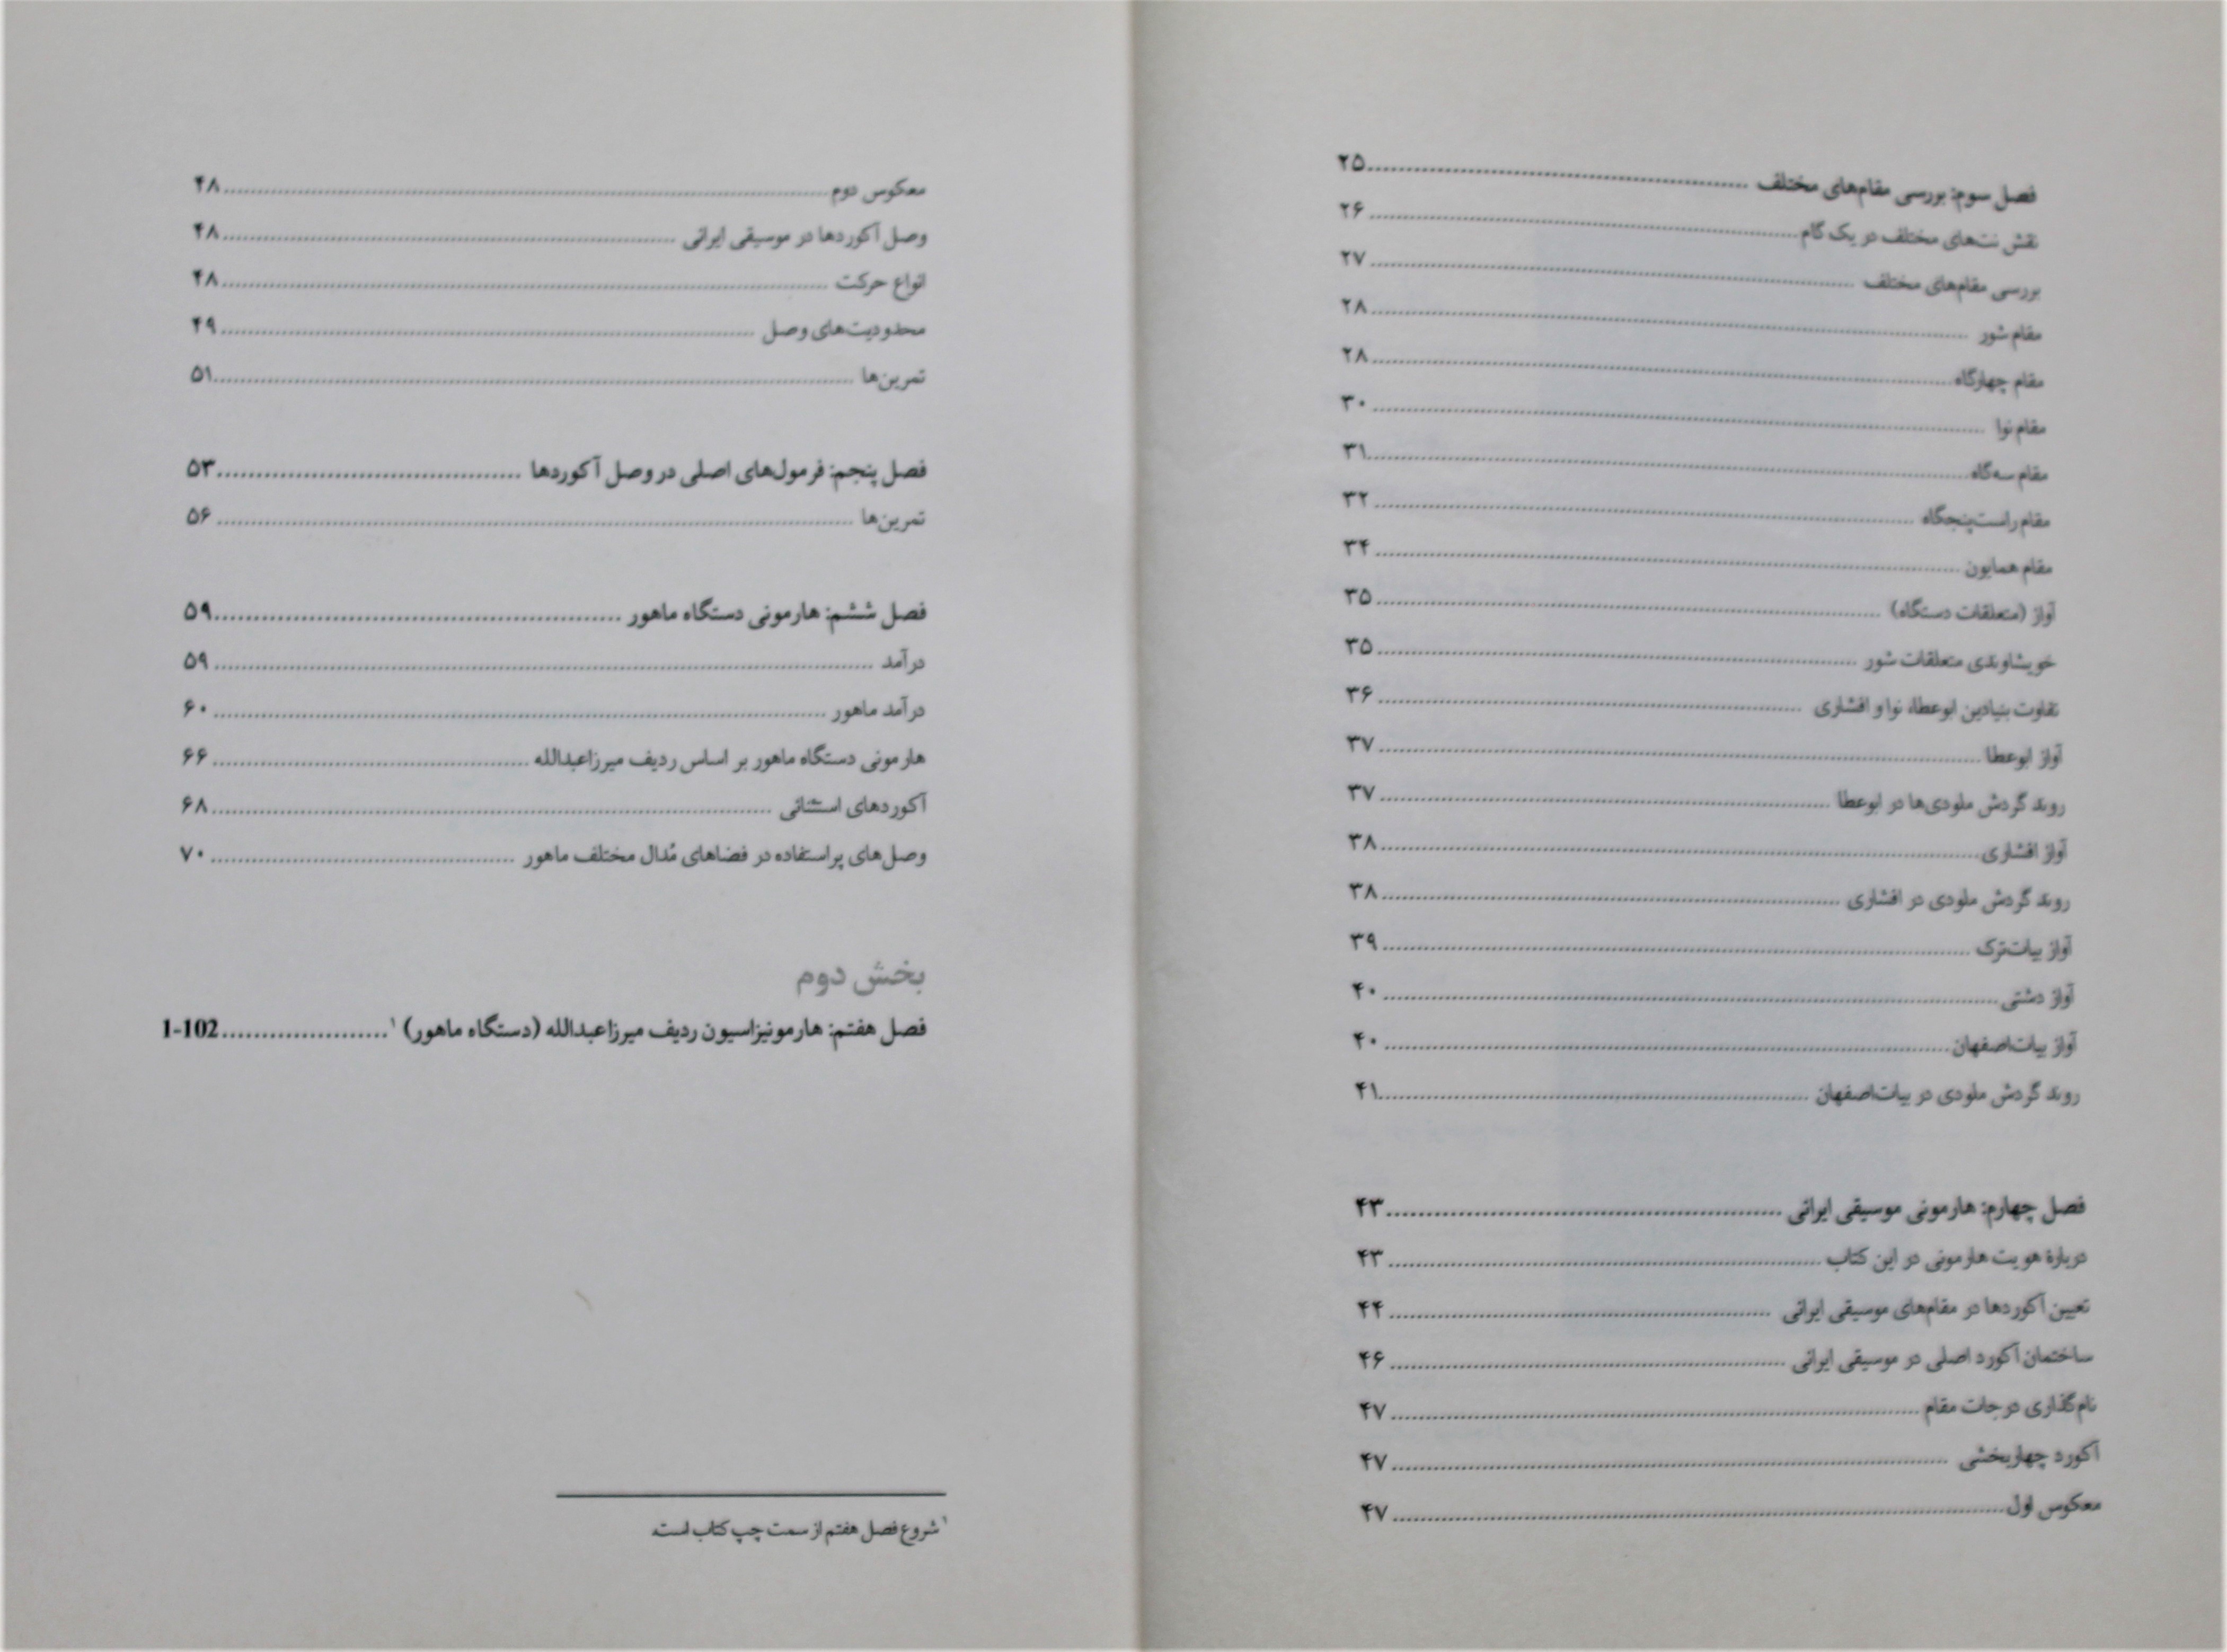 فصل سوم: بررسی مقام‌های مختلف ........ ۲۵
نقش نت‌های مختلف در یک گام ........ ۲۶
بررسی مقام‌های مختلف ........ ۲۷
مقام شور ........ ۲۸
مقام چهارگاه ........ ۲۸
مقام نوا ........ ۳۰
مقام سه‌گاه ........ ۳۱
مقام راست‌پنجگاه ........ ۳۲
مقام همایون ........ ۳۴
آواز (متعلقات دستگاه) ........ ۳۵
خویشاوندی متعلقات شور ........ ۳۵
تفاوت بنیادین ابوعطا، نوا و افشاری ........ ۳۶
آواز ابوعطا ........ ۳۷
روند گردش ملودی‌ها در ابوعطا ........ ۳۷
آواز افشاری ........ ۳۸
روند گردش ملودی در افشاری ........ ۳۸
آواز بیات‌ترک ........ ۳۹
آواز دشتی ........ ۴۰
آواز بیات‌اصفهان ........ ۴۰
روند گردش ملودی در بیات‌اصفهان ........ ۴۱
فصل چهارم: هارمونی موسیقی ایرانی ........ ۴۳
دربارهٔ هویت هارمونی در این کتاب ........ ۴۳
تعیین آکوردها در مقام‌های موسیقی ایرانی ........ ۴۴
ساختمان آکورد اصلی در موسیقی ایرانی ........ ۴۶
نام‌گذاری درجات مقام ........ ۴۷
آکورد چهاربخشی ........ ۴۷
معکوس اول ........ ۴۷
معکوس دوم ........ ۴۸
وصل آکوردها در موسیقی ایرانی ........ ۴۸
انواع حرکت ........ ۴۸
محدودیت‌های وصل ........ ۴۹
تمرین‌ها ........ ۵۱
فصل پنجم: فرمول‌های اصلی در وصل آکوردها ........ ۵۳
تمرین‌ها ........ ۵۶
فصل ششم: هارمونی دستگاه ماهور ........ ۵۹
درآمد ........ ۵۹
درآمد ماهور ........ ۶۰
هارمونی دستگاه ماهور بر اساس ردیف میرزاعبدالله ........ ۶۶
آکوردهای استثنائی ........ ۶۸
وصل‌های پراستفاده در فضاهای مُدال مختلف ماهور ........ ۷۰
بخش دوم
فصل هفتم: هارمونیزاسیون ردیف میرزاعبدالله (دستگاه ماهور) ۱ ........ 1-102
۱ شروع فصل هفتم از سمت چپ کتاب است.